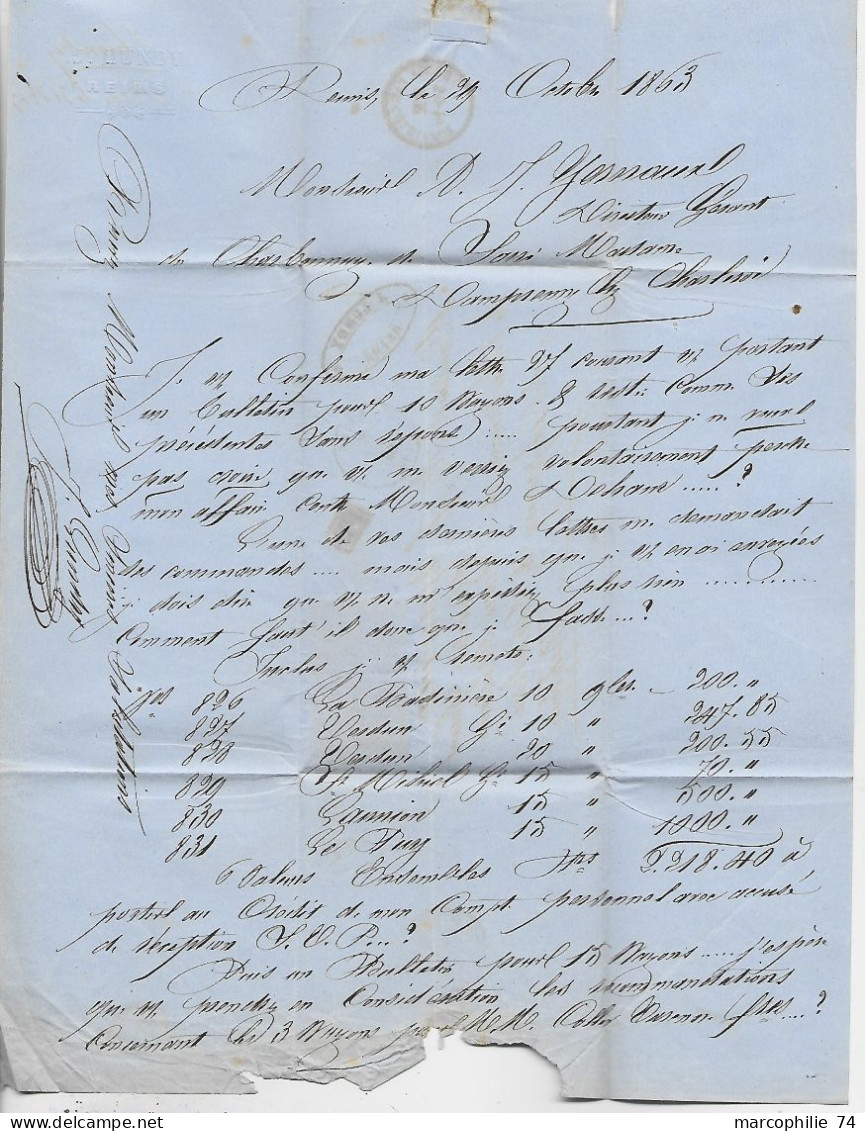 REIMS
Reims, le 29 Octobre 1863
Monsieur A. J.
Directeur Gérant
de Charbonnage de
à Dampremy by Charleroi
J. v/ Confirme ma lettre 27 courant v/ portant
un bulletin pour 10 wagons & resté comme les
précédentes sans réponse ..... pourtant je ne veux
pas croire que v/ me veuillez volontairement perdre
mon affaire contre Monsieur ..... ?
L'une de vos dernières lettres me demandait
des commandes .... mais depuis que je v/ en ai envoyées
je dois dire que v/ ne m'expédiez plus rien ..........
Comment faut'il donc que je fasse ... ?
Inclus je v/ remets :
Nos 826 La 10 9bre 200. "
827 Verdun 10 " 247. 85
828 Verdun 20 " 200. 55
829 St Mihiel 15 " 70. "
830 Lannion 15 " 500. "
831 Le Puy 15 " 1000. "
6 Valeurs Ensembles frs 2.218.40 à
porter au Crédit de mon Compte personnel avec accusé
de réception S. V. P... ?
Puis un Bulletin pour 15 Wagons ..... j'espère
que v/ prendrez en Considération les recommandations
Concernant les 3 Wagons pour M.M. ..... ?
Monsieur mes Salutations
marcophilie 74